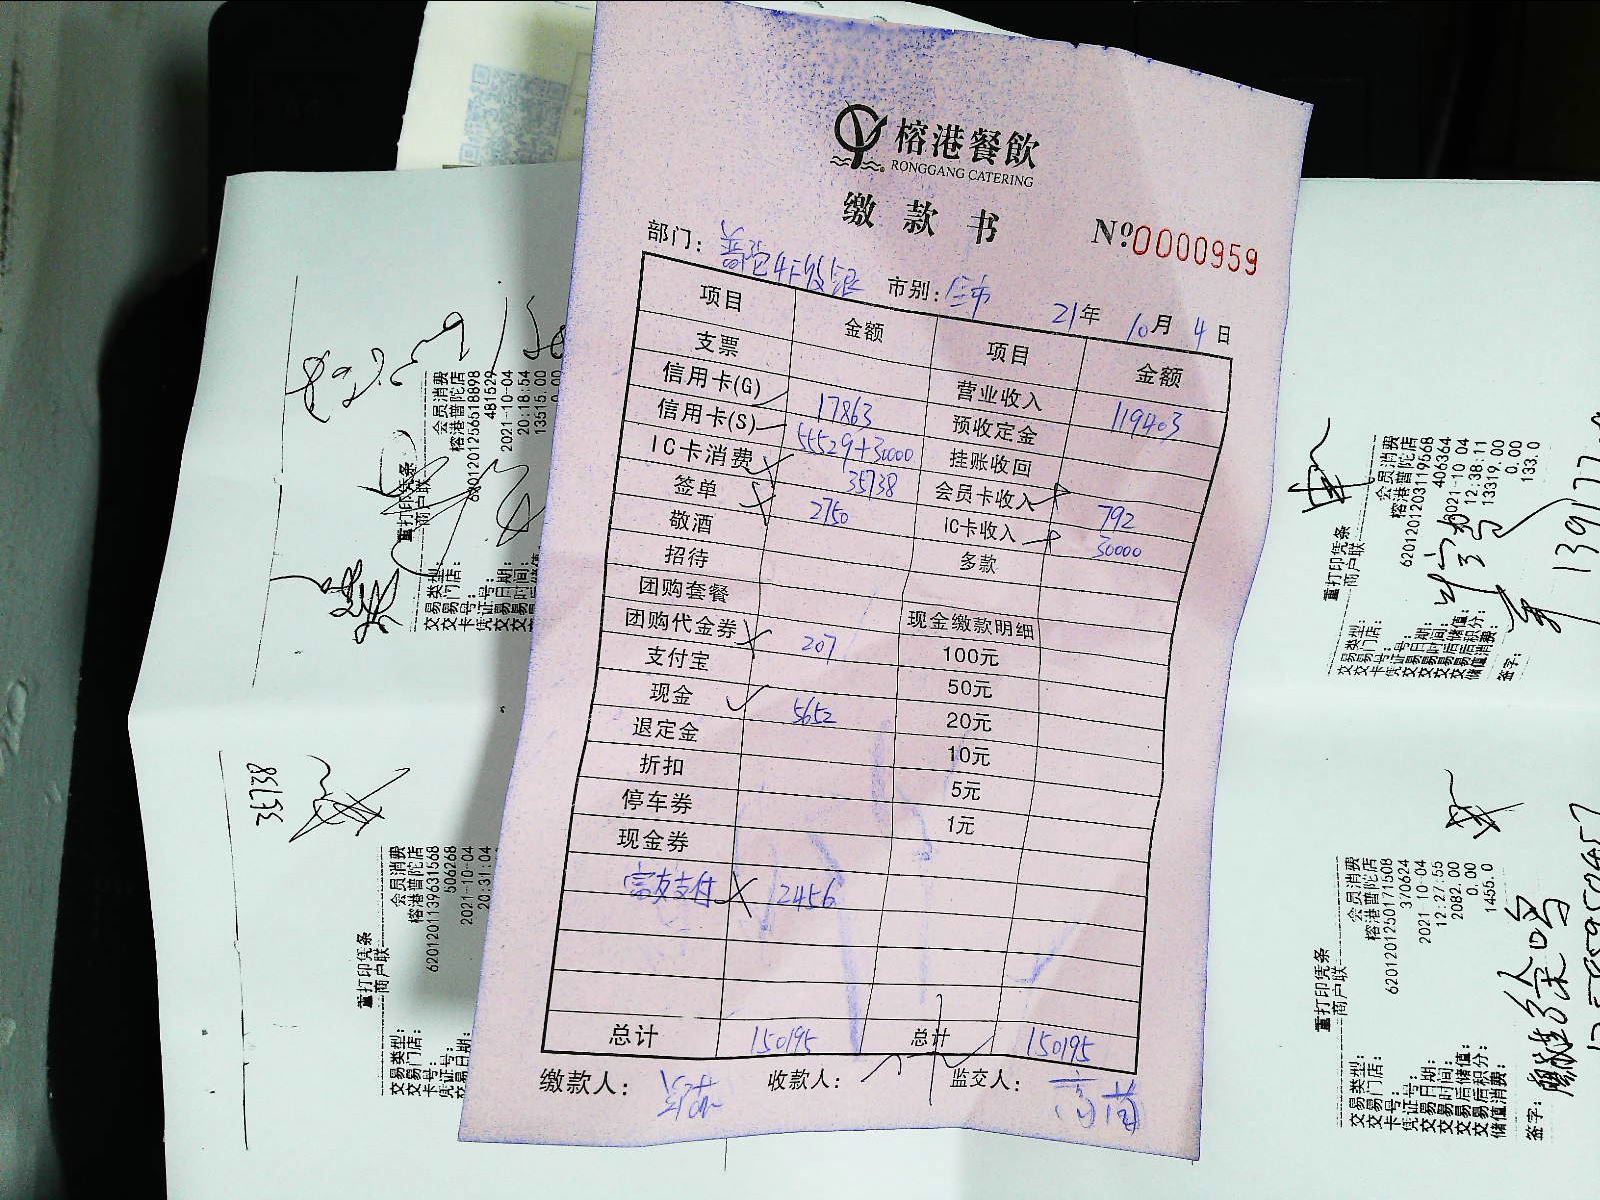 榕港餐飲
RONGGANG CATERING
缴款书
Nº0000959
部门：
市别：全市 21年 10月 4日
项目 金额 项目 金额
支票 营业收入 119403
信用卡(G) 17863 预收定金
信用卡(S) 55529+30000 挂账收回
IC卡消费 35738 会员卡收入 792
签单 2750 IC卡收入 30000
敬酒 多款
招待
团购套餐 现金缴款明细
团购代金券 207 100元
支付宝 50元
现金 5652 20元
退定金 10元
折扣 5元
停车券 1元
现金券
富友支付 2456
总计 150195 总计 150195
缴款人： 收款人： 监交人：
重打印凭条
商户联
交易类型： 会员消费
交易门店： 榕港普陀店
卡号： 6201201256518898
凭证号： 481529
交易日期： 2021-10-04
交易时间： 20:18:54
13515.00
35738
重打印凭条
商户联
交易类型： 会员消费
交易门店： 榕港普陀店
卡号： 6201201139631568
凭证号： 506268
交易日期： 2021-10-04
20:31:04
重打印凭条
商户联
交易类型： 会员消费
交易门店： 榕港普陀店
卡号： 6201201203119568
凭证号： 406364
交易日期： 2021-10-04
交易时间： 12:38:11
交易后储值： 13319.00
交易后积分： 0.00
储值消费： 133.0
签字：
重打印凭条
商户联
交易类型： 会员消费
交易门店： 榕港普陀店
卡号： 6201201250171508
凭证号： 370624
交易日期： 2021-10-04
交易时间： 12:27:55
交易后储值： 2082.00
交易后积分： 0.00
储值消费： 1455.0
签字：